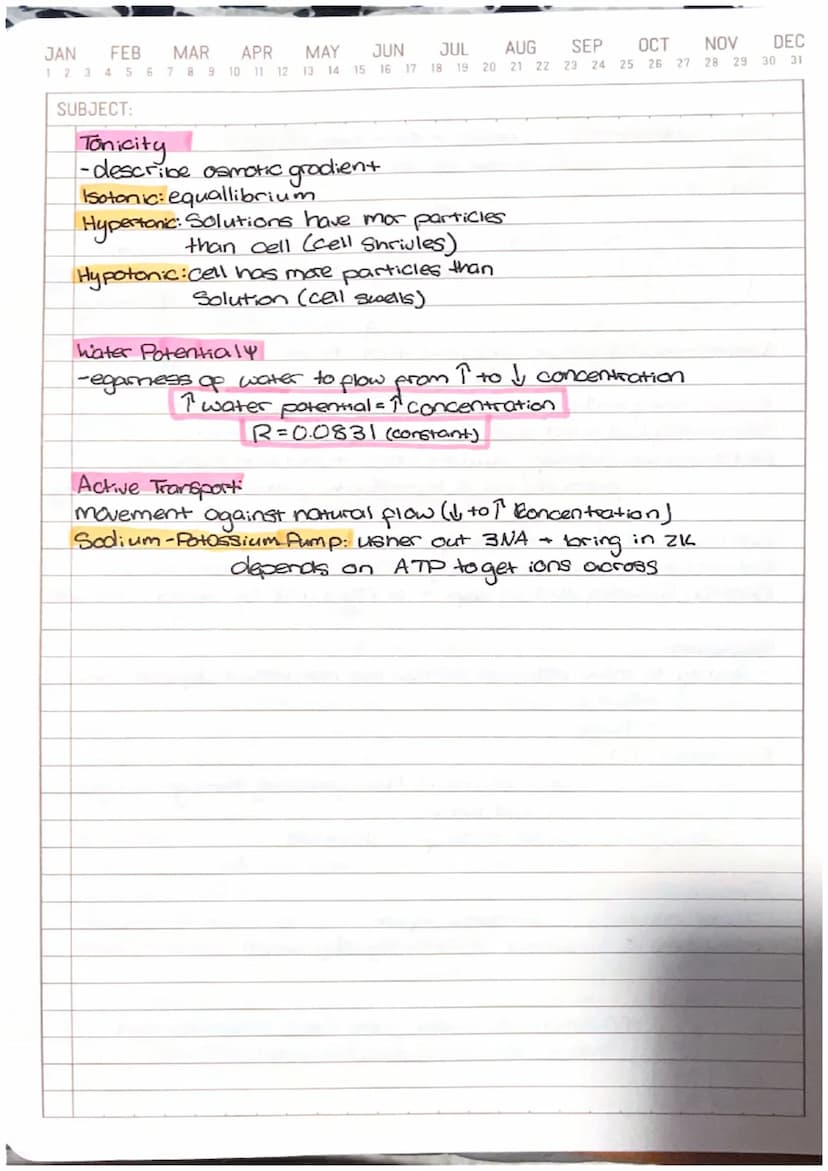 JAN FEB MAR APR MAY JUN JUL AUG SEP OCT NOV DEC
1 2 3 4 5 6 7 8 9 10 11 12 13 14 15 16 17 18 19 20 21 22 23 24 25 26 27 28 29 30 31
SUBJECT:
Tonicity
-describe osmotic gradient
Isotonic: equallibrium
Hypertonic: Solutions have mor particles
than cell (cell Shrivles)
Hypotonic: cell has more particles than
Solution (cell swells)
Water Potential Ψ
-egarness of water to flow from ↑ to ↓ concentration
↑ water potential = ↑ concentration
R = 0.0831 (constant)
Active Transport:
movement against natural flow (↓ to ↑ concentration)
Sodium-Potossium Pump: usher out 3NA + bring in 2K
depends on ATP to get ions across